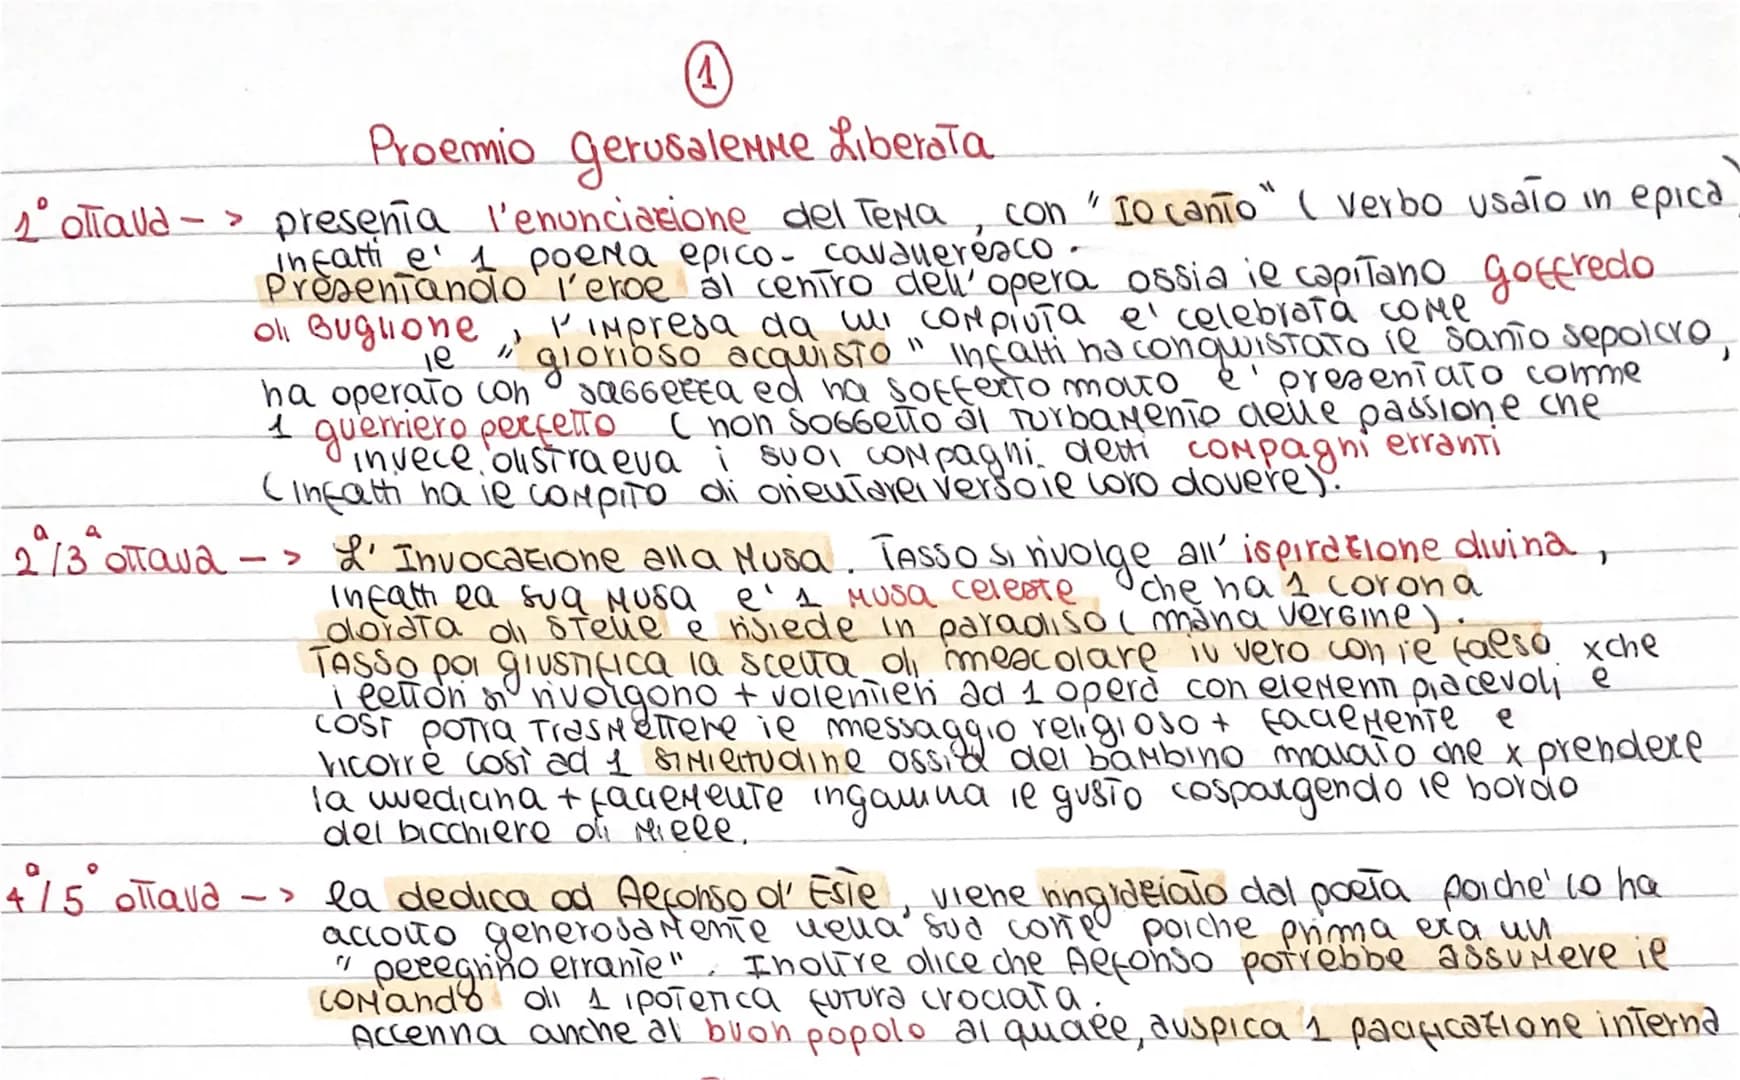 1
Proemio Gerusalemme Liberata
1° ottava -> presenta l'enunciazione del Tema, con "Io canto" ( verbo usato in epica)
infatti e' 1 poema epico-cavalleresco.
Presentando l'eroe al centro dell'opera ossia il capitano Goffredo
di Buglione, l'impresa da lui compiuta e' celebrata come
il "glorioso acquisto" infatti ha conquistato il Santo sepolcro,
ha operato con saggezza ed ha sofferto molto e' presentato comme
1 guerriero perfetto ( non soggetto al turbamento delle passione che
invece distraeva i suoi compagni detti compagni erranti
(infatti ha il compito di orientarei verso il loro dovere).
2ª/3ª ottava -> L'Invocazione alla Musa. Tasso si rivolge all'ispirazione divina,
infatti la sua Musa e' 1 Musa celeste che ha 1 corona
dorata di stelle e risiede in paradiso ( maria vergine).
Tasso poi giustifica la scelta di mescolare il vero con il falso xche
i lettori si rivolgono + volentieri ad 1 opera con elementi piacevoli e
così potra trasmettere il messaggio religioso + facilemente e
ricorre così ad 1 similitudine ossia del bambino malato che x prendere
la medicina + facilemente inganna il gusto cospargendo il bordo
del bicchiere di miele.
4ª/5° ottava -> la dedica ad Alfonso d'Este, viene ringraziato dal poeta poiche' lo ha
accolto generosamente nella sua corte poiche prima era un
"peregrino errante". Inoltre dice che Alfonso potrebbe assumere il
comando di 1 ipotetica futura crociata.
Accenna anche al buon popolo al quale, auspica 1 pacificazione interna